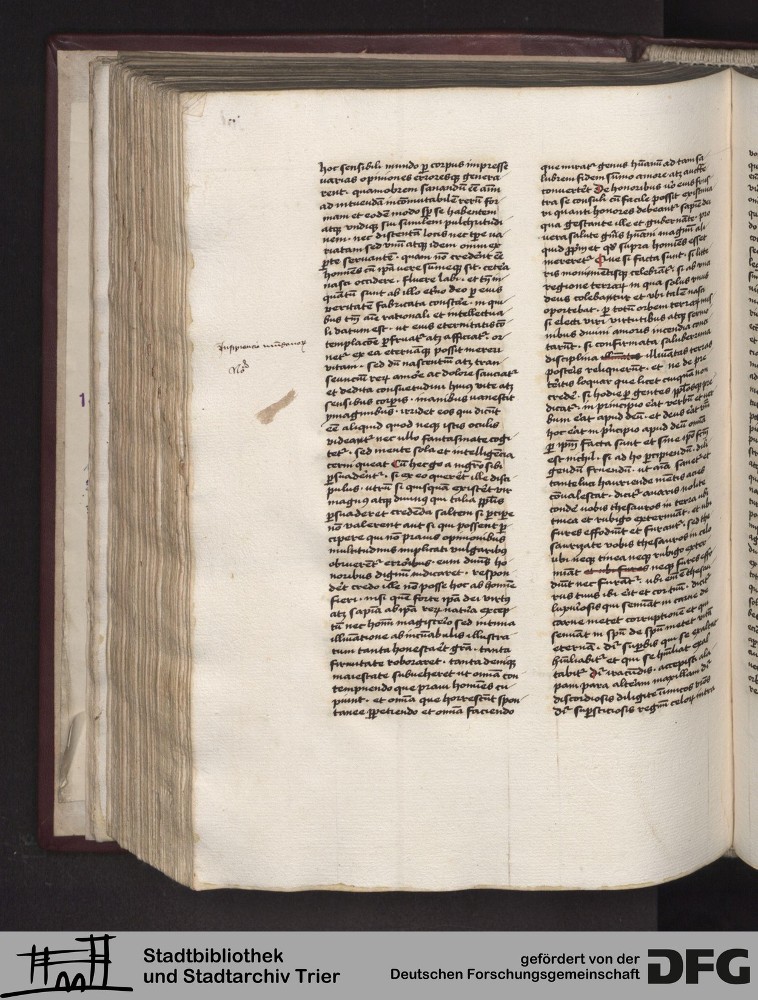 hoc sensibili mundo p corpus impresse
varias opiniones erroresq; genera
rent. quamobrem sanandū eē aīm
ad intuendā incomutabilē rerū for
mam et eodē modo sp se habentem
atq; undiq; sui similem pulchritudi
nem. nec distentā locis nec tpe va
riatam sed unū atq; idem omni ex
pte servantē. quam nō credent eē
homines cū ipa vere sumeq; sit. cetera
nasci occidere. fluere labi. et tn̄ in
quātū sunt ab illo etno deo p eius
veritatē fabricata constare. in qui
bus tm̄ aīe rationali et intellectua
li datum est. ut eius eternitatis cō
templacōe pfruat atq; afficiat. or
net ex ea eternāq; possit mereri
vitam. sed dū nascentiū atq; tran
seunciū rerū amore ac dolore sauciat
et dedita consuetudini huius vite atq;
sensibus corpis. inanibus vanescit
ymaginibus. irridet eos qui dicūt
eē aliquid quod neq; istis oculis
videat nec ullo fantasmate cogi
tet. sed mente sola et intelligēcia
cerni queat Cū hec ergo a mgro sibi
psuadent. si ex eo quereret ille disci
pulus. utrū si quisquā existēt vir
magnus atq; divinus qui talia pplis
psuaderet credenda saltem si pcipe
nō valerent aut si qui possent p
cipere qui nō pravis opinionibus
multitudinis implicati vulgaribus
obruerent erroribus. eum divinis ho
noribus dignū iudicaret. respon
dēt credo ille nō posse hoc ab homine
fieri. nisi quē forte ipā dei virtus
atq; sapīa ab ipā rerū natura excep
tū nec hoīm magisterio sed intima
illuīatione ab incunabulis illustra
tum tanta honestaret grā. tanta
firmitate roboraret. tanta deniq;
maiestate subveheret ut omīa con
tempnendo que pravi homīes cu
piunt. et omīa que horrescūt
tanee ppetiendo et omīa faciendo
que mirat genus hūanū ad tam sa
lubrem fidem sūmo amore atq; aucte
converteret De honoribus vo eius frus
tra se consuli cū facile possit existima
ri quanti honores debeant sapie dei
qua gestante ille et gubernāte. pro
vera salute gnis hūani magnū ali
quid ppriū et qd supra homīes esset
mereret Que si facta sunt. si litte
ris monimētisq; celebrant. si ab una
regione terrarū in qua solus unus
deus colebatur et ubi talē nasci
oportebat. p totū orbem terrarū mis
si electi viri virtutibus atq; sermo
nibus divini amoris incendia conci
tarūt. si confirmata saluberrima
disciplina illuīatas terras
posteris reliquerunt. et ne de pre
teritis loquar que licet cuiquā nō
crede. si hodie p gentes pplosq; pre
dicat. in principio erat verbū et ver
bum erat apud deū. et deus erat vbū
hoc erat in principio apud deū omīa
p ipm facta sunt et sine ipo factū
est nichil. si ad hoc pcipiendū dili
gendū fruendū. ut aīa sanet et
tante luci hauriende mentis acies
convalescat. dicit avaris nolite
conde vobis thesauros in terra ubi
tinea et rubigo exterminat. et ubi
fures effodiūt et furant. sed the
saurizate vobis thesauros in celo
ubi neq; tinea neq; rubigo exter
minat et ubi fures neq; fures effo
diūt nec furant. ubi enī ē thesau
rus tuus ibi erit et cor tuū. dicit
luxuriosis qui semīat in carne de
carne metet corruptionē et qui
semīat in spū de spū metet vitā
eternā. dr superbis qui se exaltat
hūiliabit et qui se hūiliat exal
tabit dr iracūdis. accepisti ala
pam para alteram maxillam dr
discordiosis diligite inimicos vros
dr supsticiosis regnū celorū intra
Stadtbibliothek
und Stadtarchiv Trier
gefördert von der
Deutschen Forschungsgemeinschaft
DFG